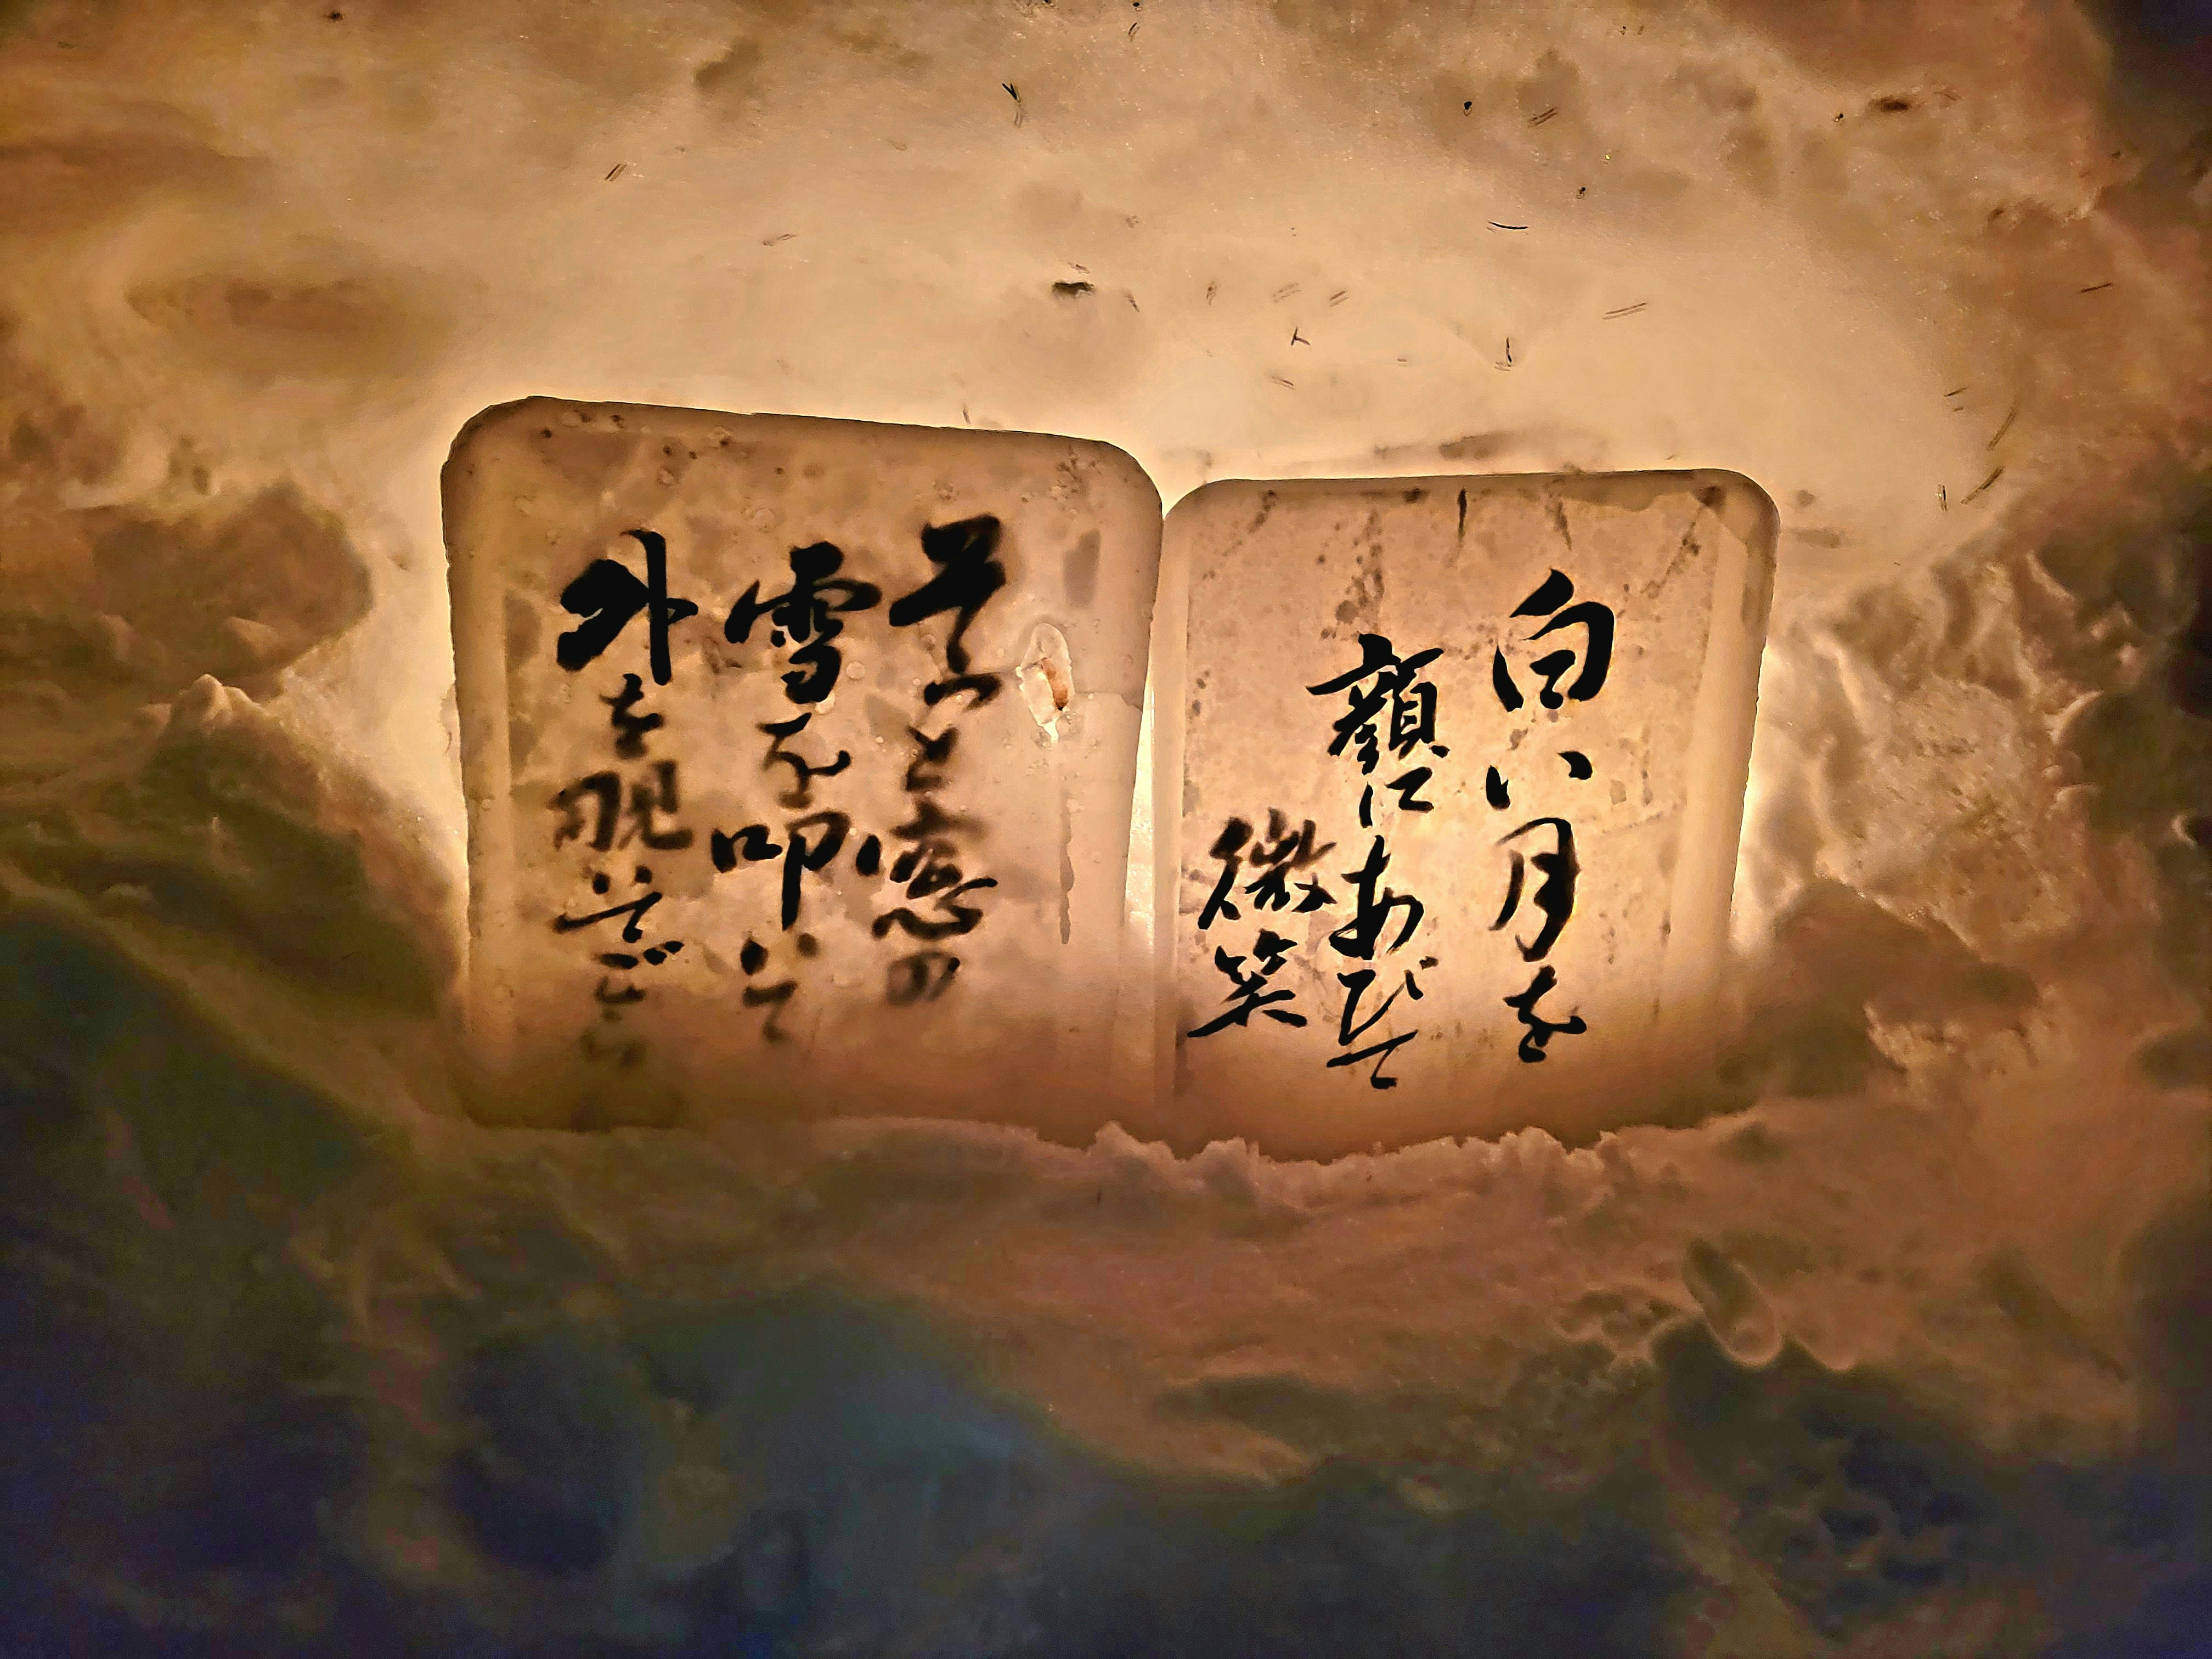 白い月を
顔にあびて
微笑
そっと窓の
雪を叩いて
外を覗いてごらん